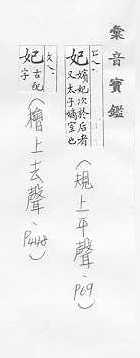 彙音寶鑑
妃 嬪妃次於后者
又太子嫡室也
(規上平聲‧P69)
妃 古配
字
(檜上去聲‧P448)